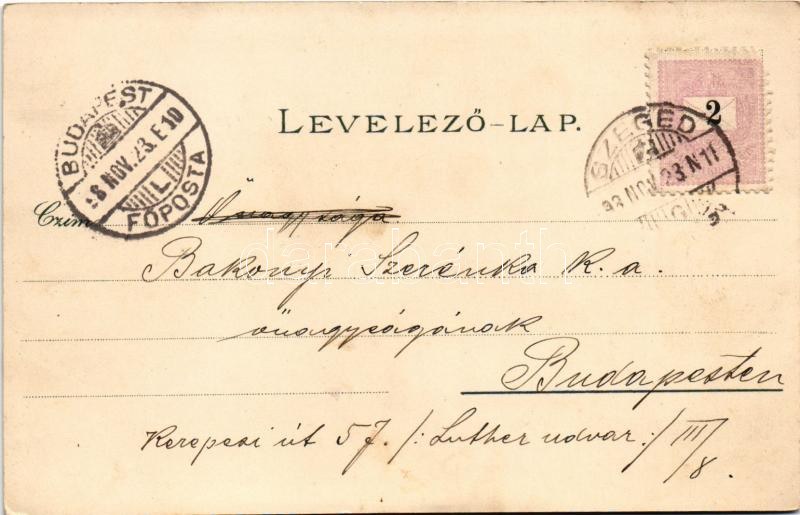 LEVELEZŐ-LAP.
BUDAPEST
98 NOV. 23. E 10
L
FŐPOSTA
2
SZEGED
98 NOV. 23. N 11
Czim
Őnagysága
Bakonyi Szerénke k. a.
őnagyságának
Budapesten
Kerepesi út 57. /: Luther udvar :/ III/8.
darabanth